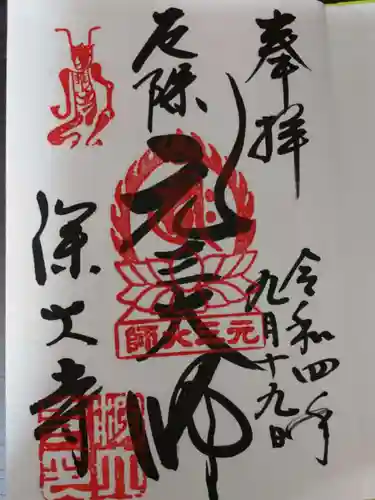 奉拝
令和四年
九月十九日
厄除
元三大師
元三大師
深大寺